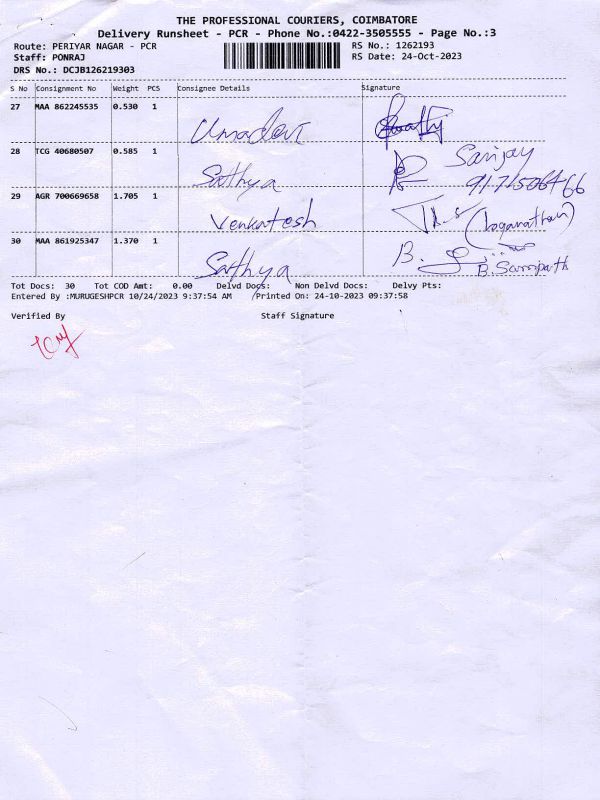 THE PROFESSIONAL COURIERS, COIMBATORE
Delivery Runsheet - PCR - Phone No.:0422-3505555 - Page No.:3
Route: PERIYAR NAGAR - PCR
RS No.: 1262193
Staff: PONRAJ
RS Date: 24-Oct-2023
DRS No.: DCJB126219303
S No Consignment No Weight PCS Consignee Details Signature
27 MAA 862245535 0.530 1 Umadevi
28 TCG 40680507 0.585 1 Sathya Sanjay
29 AGR 700669658 1.705 1 Venkatesh (Loganathan)
30 MAA 861925347 1.370 1 Sathya B. B. Sampath
Tot Docs: 30 Tot COD Amt: 0.00 Delvd Docs: Non Delvd Docs: Delvy Pts:
Entered By :MURUGESHPCR 10/24/2023 9:37:54 AM /Printed On: 24-10-2023 09:37:58
Verified By Staff Signature